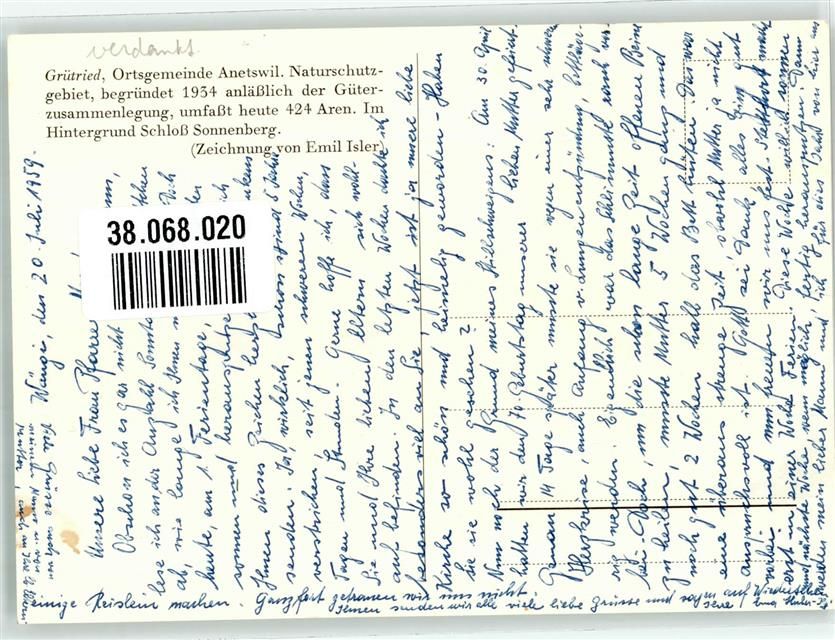 verdankt.
Grütried, Ortsgemeinde Anetswil. Naturschutz-
gebiet, begründet 1934 anläßlich der Güter-
zusammenlegung, umfaßt heute 424 Aren. Im
Hintergrund Schloß Sonnenberg.
(Zeichnung von Emil Isler)
38.068.020
Wängi, den 20. Juli 1959.
Unsere liebe Frau Pfarrer
Obschon ich es gar nicht
lese ich an der Anzahl Sonnta
ab, wie lange ich Ihnen n
heute, am 1. Ferientage,
sonnen und herausgeputzt
Ihnen dieses Zeichen herz
senden. Ja, wirklich,
verstrichen, seit jenen schweren Wochen,
Tagen und Stunden. Gerne hoffe ich, dass
Sie und Ihre lieben Eltern sich wohl-
auf befinden. In den letzten Wochen dachte ich
besonders viel an Sie, jetzt ist ja unsere liebe
Kirche so schön und heimelig geworden. Haben
Sie sie wohl gesehen?
Nun noch der Grund meines Stillschweigens: Am 30. April
hatten wir den 70. Geburtstag unserer lieben Mutter gefeiert.
Genau 14 Tage später musste sie wegen einer sehr schweren
Herzkrise, auch Anfang v. Lungenentzündung,
werden. Eigentlich war das Schlimmste rasch vor-
bei. Doch, um die schon lange Zeit offenen Beine
zu heilen, musste Mutter 5 Wochen ganz und
noch gut 2 Wochen halb das Bett hüten. Das war
eine überaus strenge Zeit, obwohl Mutter ja nicht
anspruchsvoll ist. Gott sei Dank alles ging gut
vorbei und nun freuen wir uns
erst in einer Woche Ferien. Diese Woche will ich sonnen
und nächste Woche, wenn möglich, fertig herausputzen. Dann
werden mein lieber Mann und ich für eines Bald von hier aus
einige Reislein machen. Ganz fort getrauen wir uns nicht.
Ihnen senden wir alle viele liebe Grüsse und sagen auf Wiedersehen
Ihre